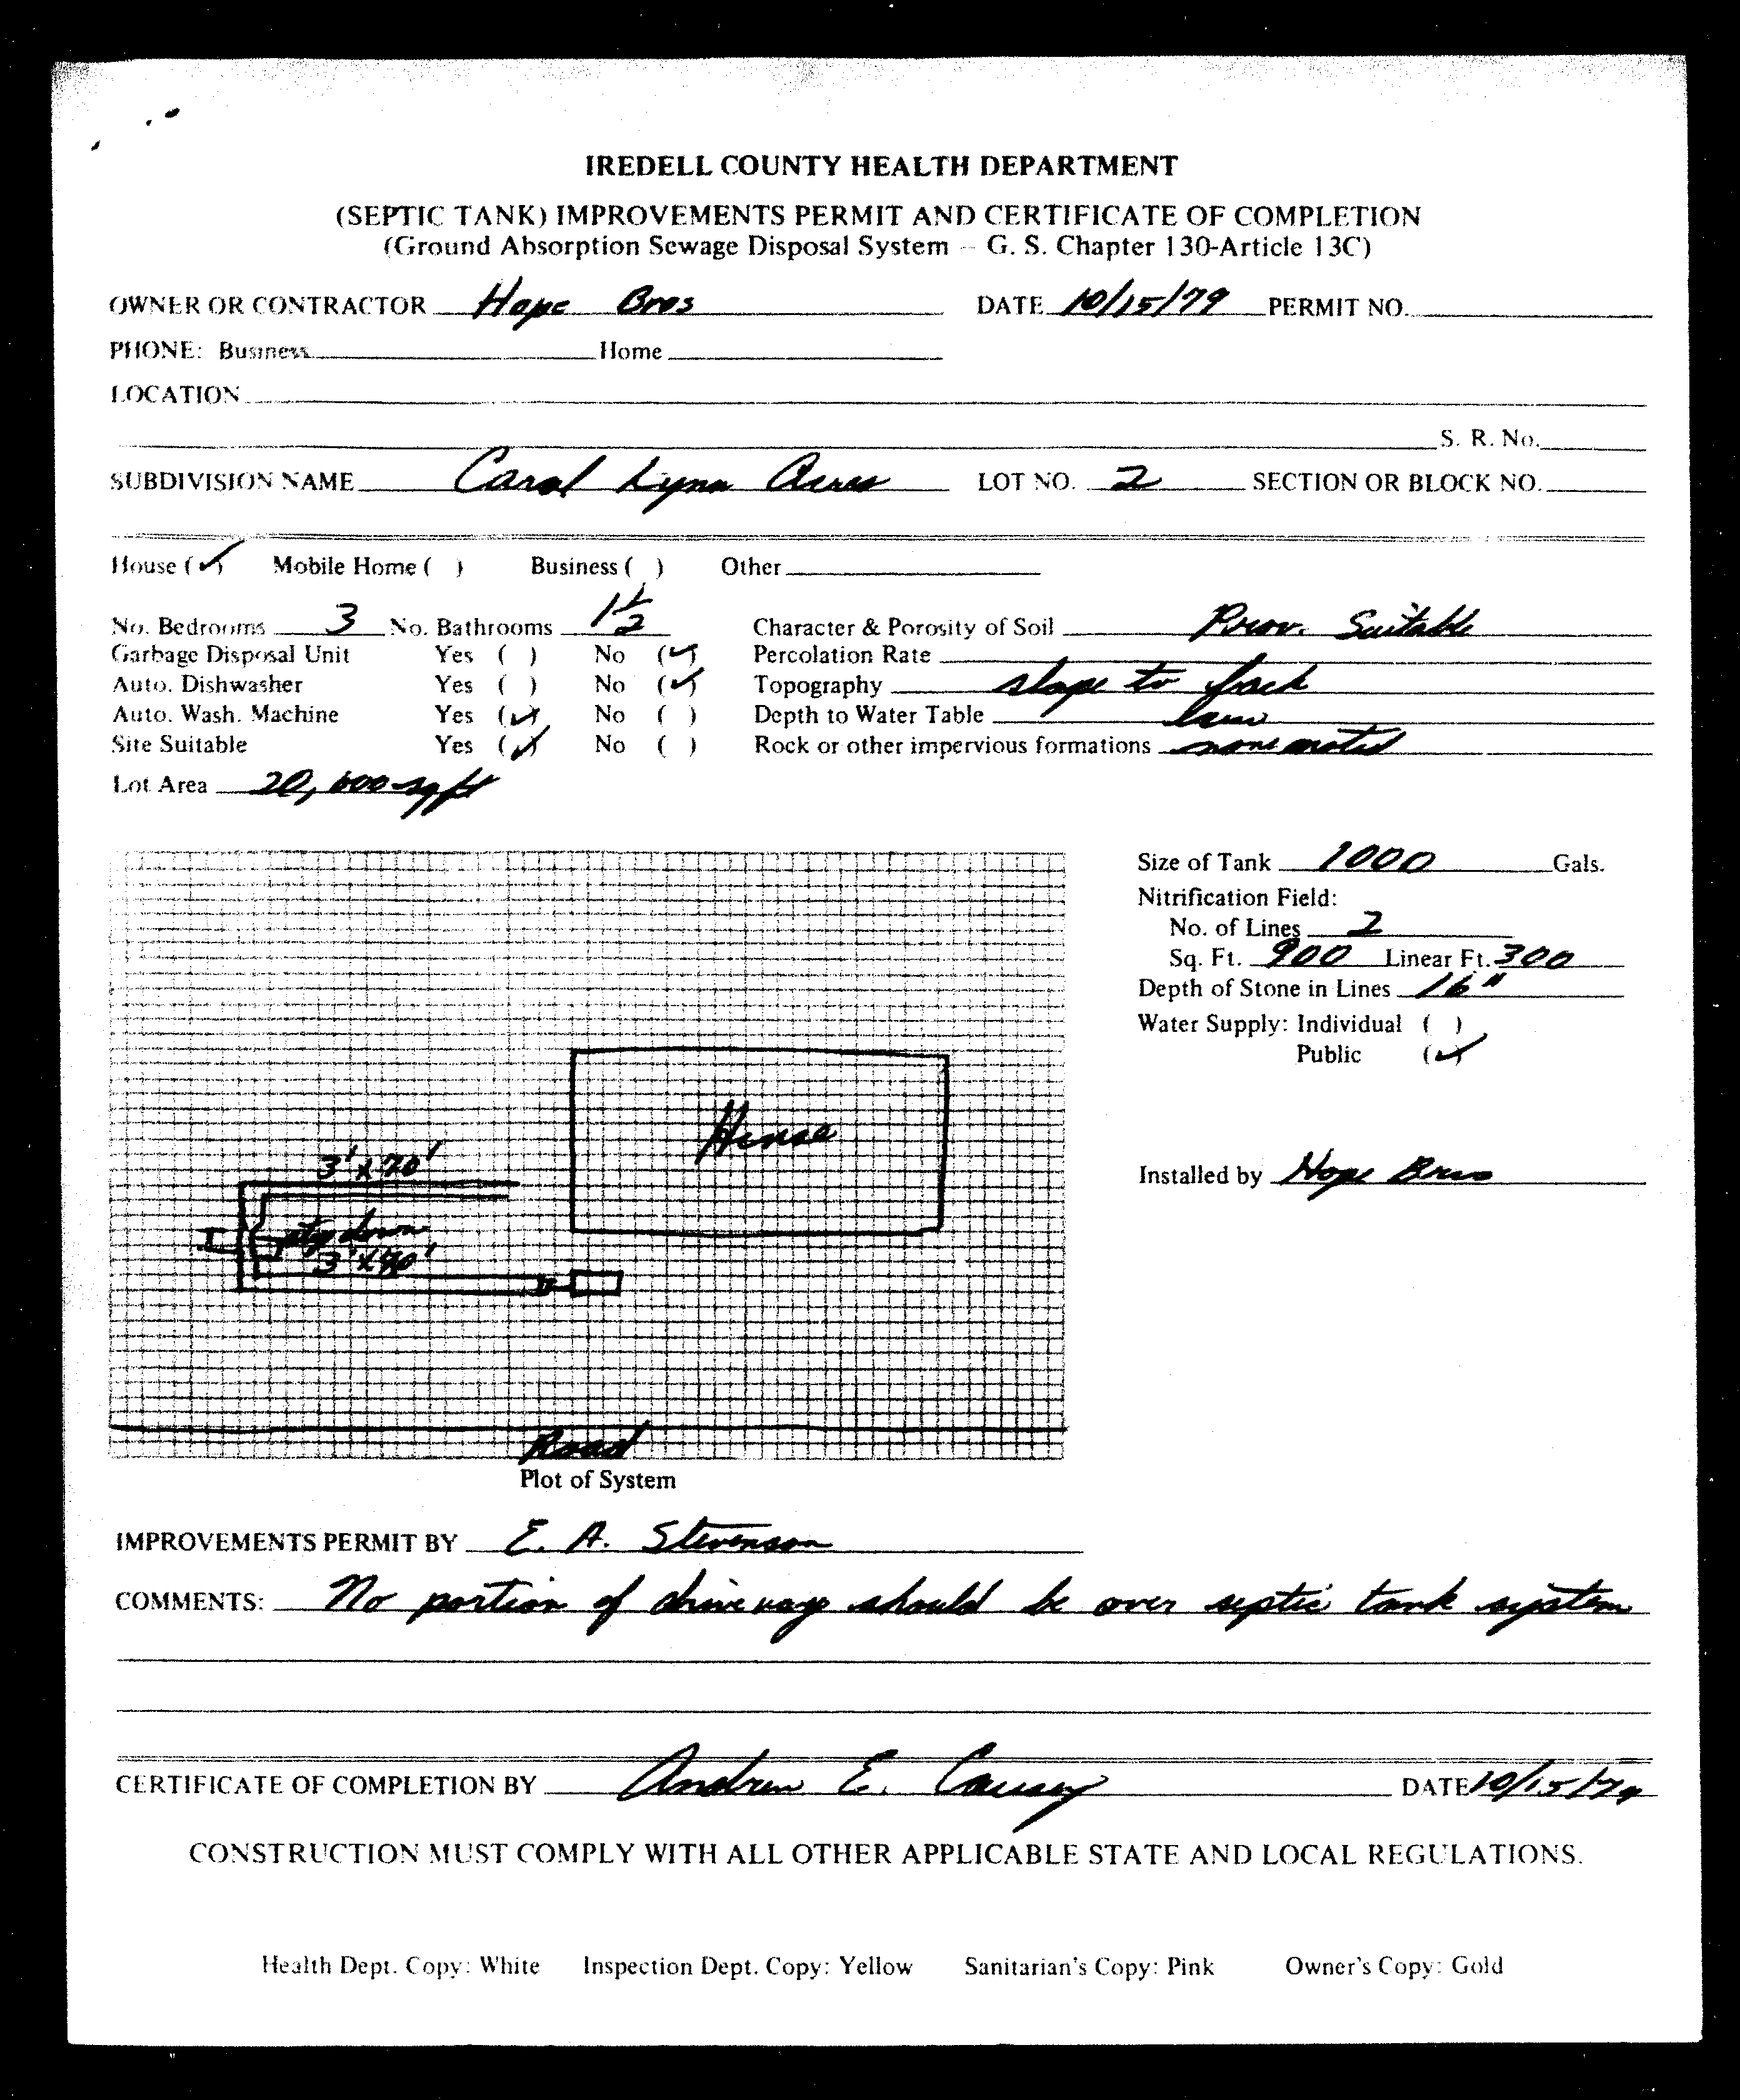 IREDELL COUNTY HEALTH DEPARTMENT
(SEPTIC TANK) IMPROVEMENTS PERMIT AND CERTIFICATE OF COMPLETION
(Ground Absorption Sewage Disposal System – G. S. Chapter 130-Article 13C)
OWNER OR CONTRACTOR Hope Bros DATE 10/15/79 PERMIT NO.
PHONE: Business Home
LOCATION
S. R. No.
SUBDIVISION NAME Carol Lynn Acres LOT NO. 2 SECTION OR BLOCK NO.
House (✓) Mobile Home ( ) Business ( ) Other
No. Bedrooms 3 No. Bathrooms 1 1/2 Character & Porosity of Soil Prov. Suitable
Garbage Disposal Unit Yes ( ) No (✓) Percolation Rate
Auto. Dishwasher Yes ( ) No (✓) Topography slope to
Auto. Wash. Machine Yes (✓) No ( ) Depth to Water Table low
Site Suitable Yes (✓) No ( ) Rock or other impervious formations none noted
Lot Area 20,000 sq ft
Size of Tank 1000 Gals.
Nitrification Field:
No. of Lines 2
Sq. Ft. 900 Linear Ft. 300
Depth of Stone in Lines 16"
Water Supply: Individual ( )
Public (✓)
House
3' x 70'
Installed by Hope Bros
step down
3' x
Road
Plot of System
IMPROVEMENTS PERMIT BY E. A. Stevenson
COMMENTS: No portion of driveway should be over septic tank system
CERTIFICATE OF COMPLETION BY Andrew E. Causey DATE 10/15/79
CONSTRUCTION MUST COMPLY WITH ALL OTHER APPLICABLE STATE AND LOCAL REGULATIONS.
Health Dept. Copy: White Inspection Dept. Copy: Yellow Sanitarian's Copy: Pink Owner's Copy: Gold